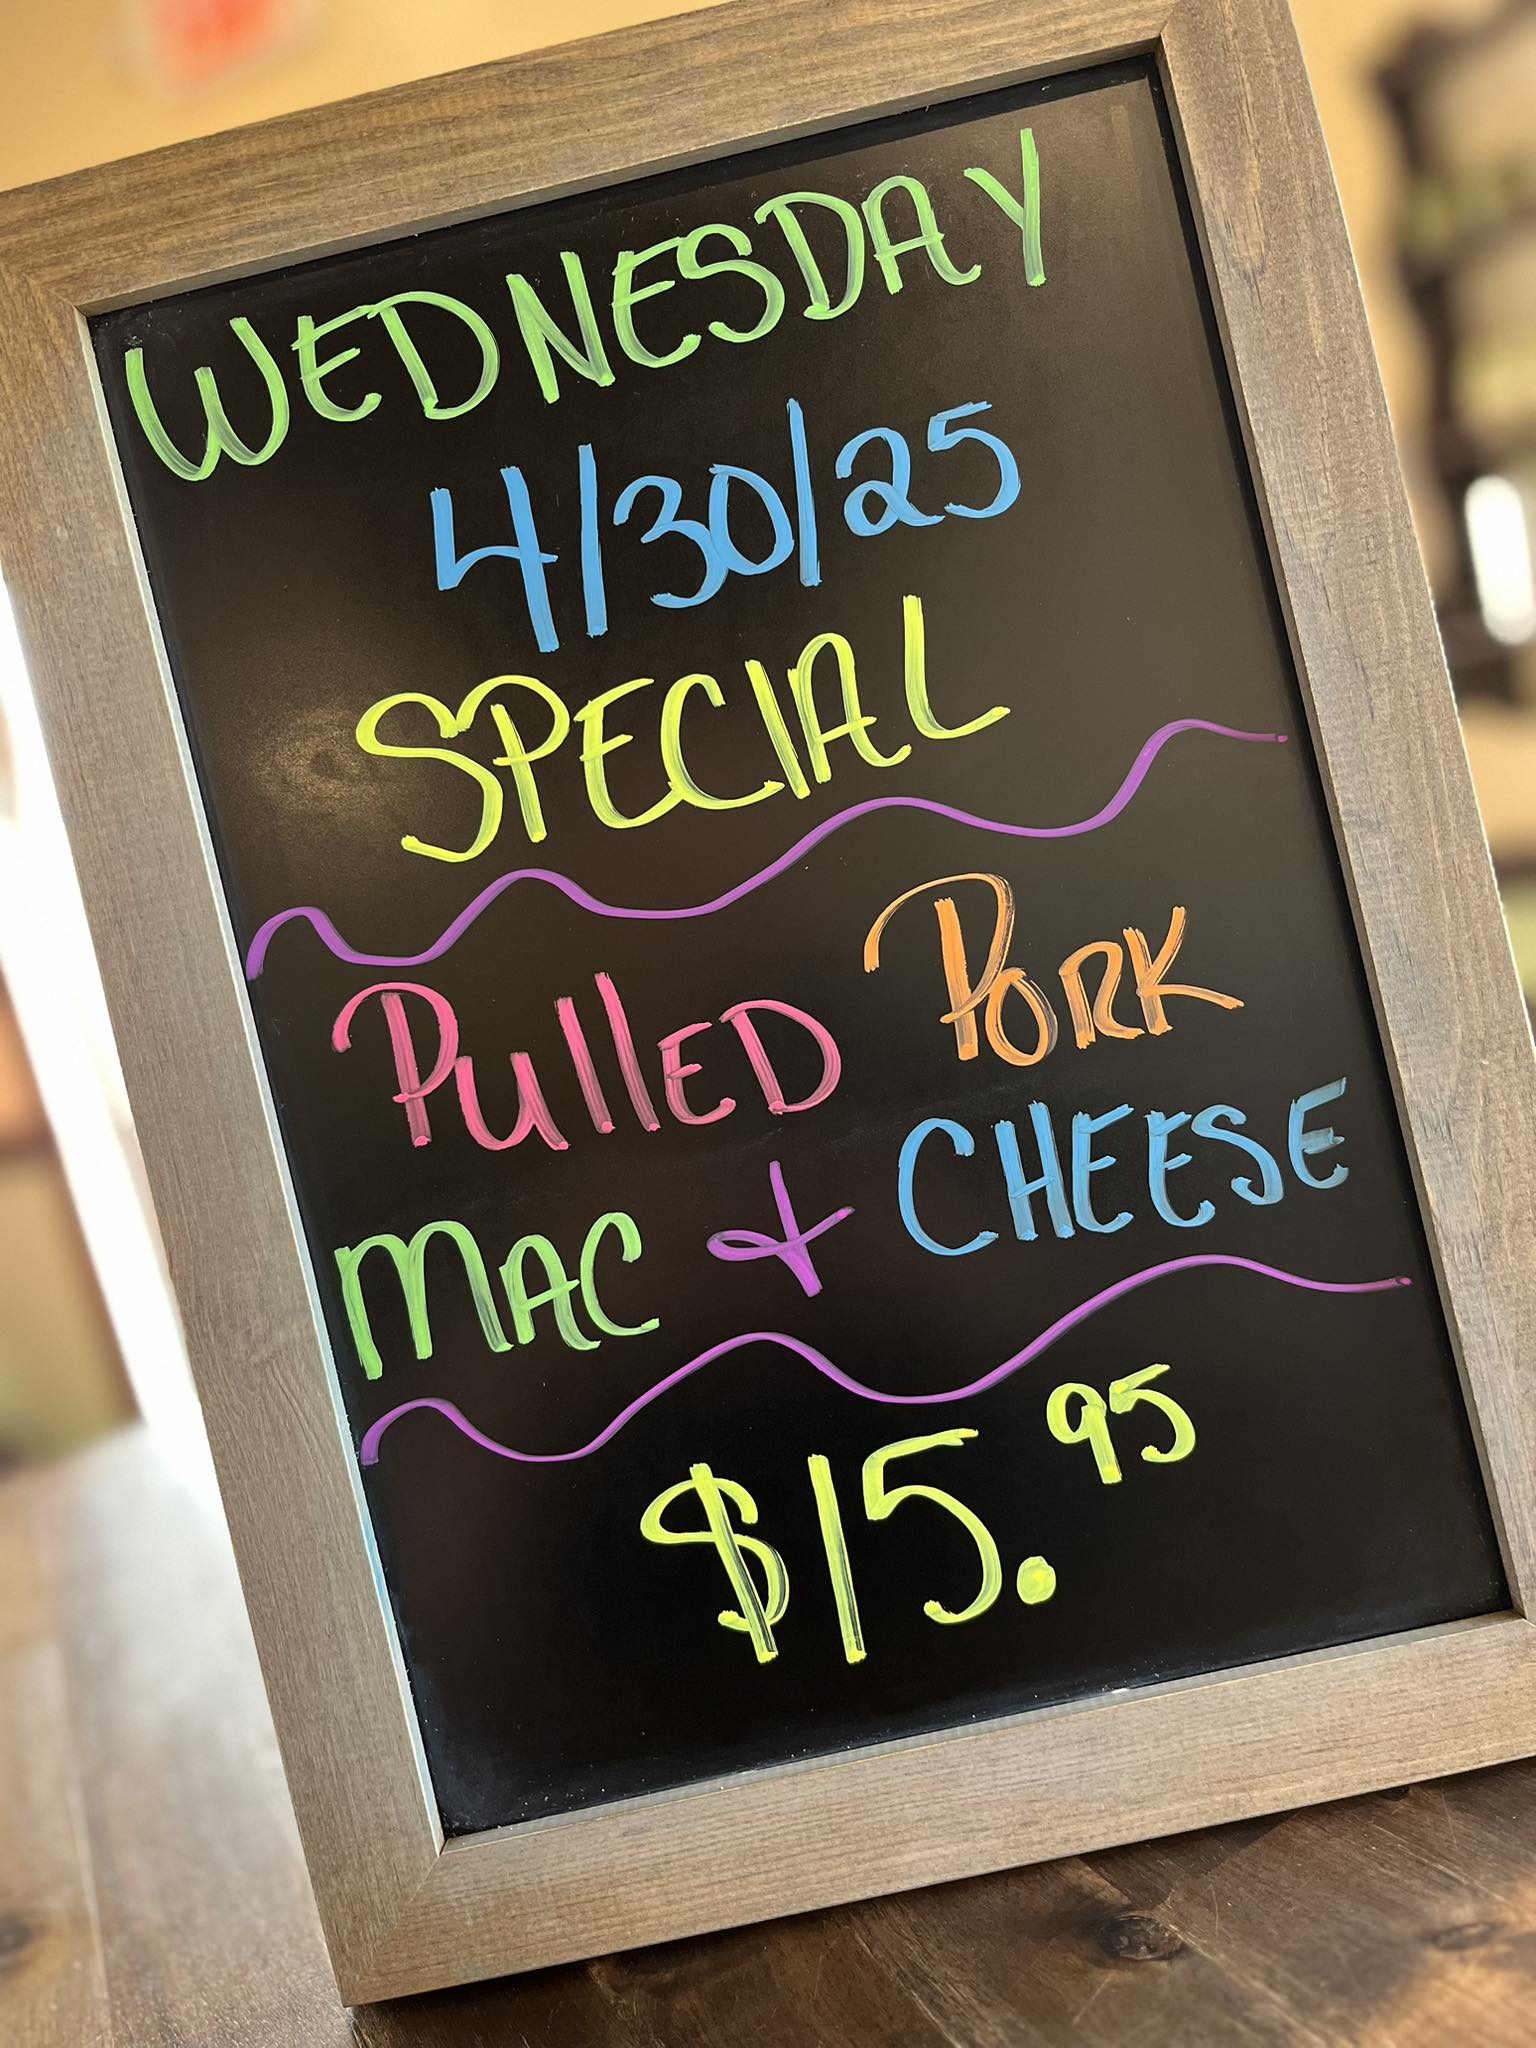 WEDNESDAY
4/30/25
SPECIAL
PullED PORK
MAC & CHEESE
$15.95